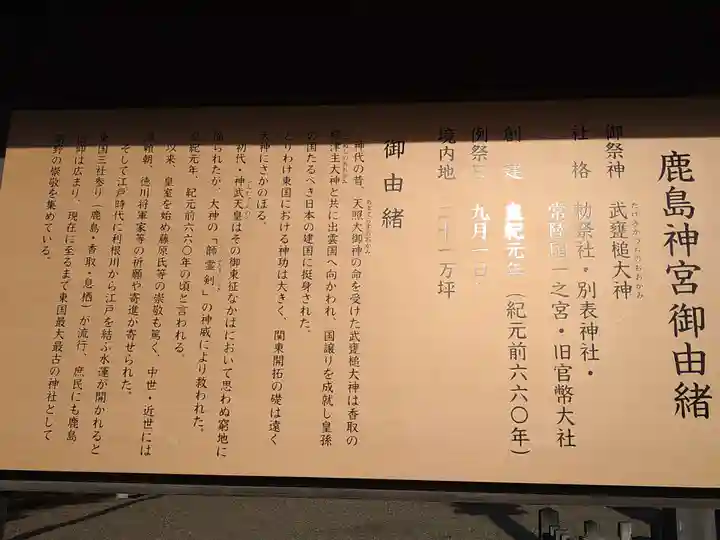 鹿島神宮御由緒
御祭神 武甕槌大神
たけみかつちのおおかみ
社格 勅祭社・別表神社・
常陸国一之宮・旧官幣大社
創建 皇紀元年(紀元前六六〇年)
例祭日 九月一日
境内地 二十一万坪
御由緒
神代の昔、天照大御神の命を受けた武甕槌大神は香取の
経津主大神と共に出雲国へ向かわれ、国譲りを成就し皇孫
の国たるべき日本の建国に挺身された。
とりわけ東国における神功は大きく、関東開拓の礎は遠く
大神にさかのぼる。
初代・神武天皇はその御東征なかばにおいて思わぬ窮地に
陥られたが、大神の「韴霊剣」の神威により救われた。
皇紀元年、紀元前六六〇年の頃と言われる。
以来、皇室を始め藤原氏等の崇敬も篤く、中世・近世には
源頼朝、徳川将軍家等の祈願や寄進が寄せられた。
そして江戸時代に利根川から江戸を結ぶ水運が開かれると
東国三社参り(鹿島・香取・息栖)が流行、庶民にも鹿島
信仰は広まり、現在に至るまで東国最大最古の神社として
の崇敬を集めている。